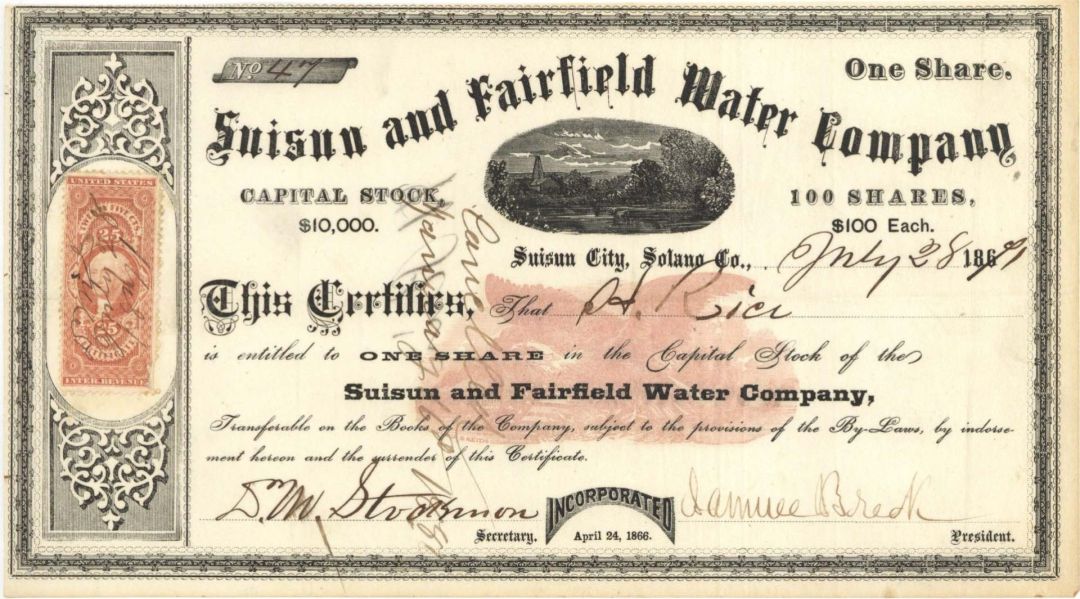 No 47
One Share.
Suisun and Fairfield Water Company
CAPITAL STOCK,
$10,000.
100 SHARES,
$100 Each.
UNITED STATES
25
25
INTER. REVENUE
Suisun City, Solano Co., July 28 186
This Certifies, That H. Rice
is entitled to ONE SHARE in the Capital Stock of the
Suisun and Fairfield Water Company,
Transferable on the Books of the Company, subject to the provisions of the By-Laws, by indorse-
ment hereon and the surrender of this Certificate.
D. M. Stockmon
INCORPORATED
Samuel Breck
Secretary.
April 24, 1866.
President.
Cancelled